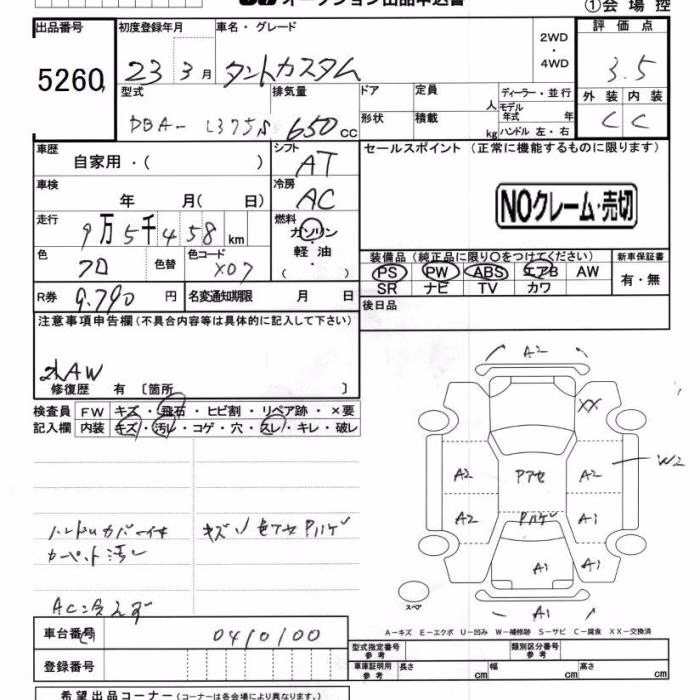 オークション出品申込書
①会場控
出品番号
5260
初度登録年月
23 3月
車名・グレード
タントカスタム
2WD
・
4WD
評価点
3.5
外装 内装
C C
型式
DBA- L375S
排気量
650cc
ドア
定員
人
形状
積載
kg
ディーラー・並行
モデル年式 年
ハンドル 左・右
車歴
自家用・( )
シフト
AT
車検
年 月( 日)
冷房
AC
走行
9万5千458km
燃料
ガソリン
・
軽油
・
( )
色
クロ
色替
色コード
X07
R券
9.790 円
名変通知期限 月 日
セールスポイント (正常に機能するものに限ります)
NOクレーム・売切
装備品 (純正品に限り○をつけてください)
PS PW ABS エアB AW
SR ナビ TV カワ
新車保証書
有・無
後日品
注意事項申告欄(不具合内容等は具体的に記入して下さい)
社AW
修復歴 有 〔箇所 〕
検査員
記入欄
FW キズ・飛石・ヒビ割・リペア跡・×要
内装 キズ・汚レ・コゲ・穴・スレ・キレ・破レ
ハンドルカバー付
カーペット汚レ
キズ
AC冷えず
A2
XX
W2
A2 Pアセ A2
A2 Pハゲ A1
A1 A1
A1
スペア
A-キズ E-エクボ U-凹み W-補修跡 S-サビ C-腐食 XX-交換済
車台番号
0410100
登録番号
型式指定番号
参考
類別区分番号
参考
車庫証明用
参考
長さ cm
幅 cm
高さ cm
希望出品コーナー (コーナーは各会場により異なります。)